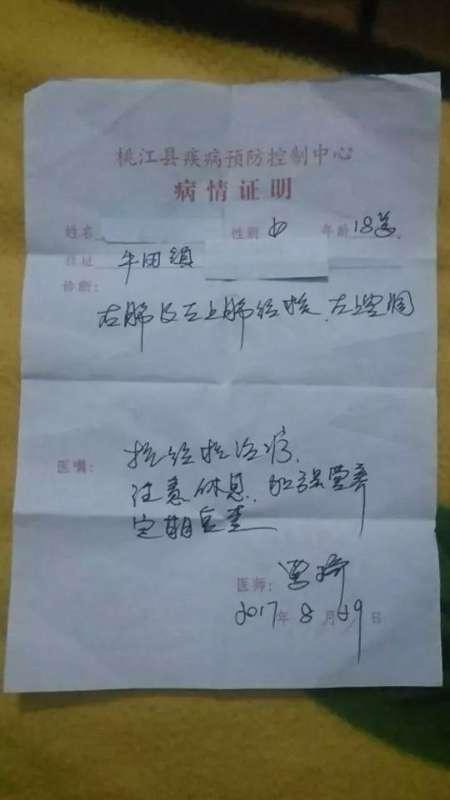 桃江县疾病预防控制中心
病情证明
姓名 性别 女 年龄 18岁
住址 牛田镇
诊断:
右肺及左上肺结核.左上空洞
医嘱: 抗结核治疗.
注意休息.加强营养
定期复查
医师:
2017年8月19日